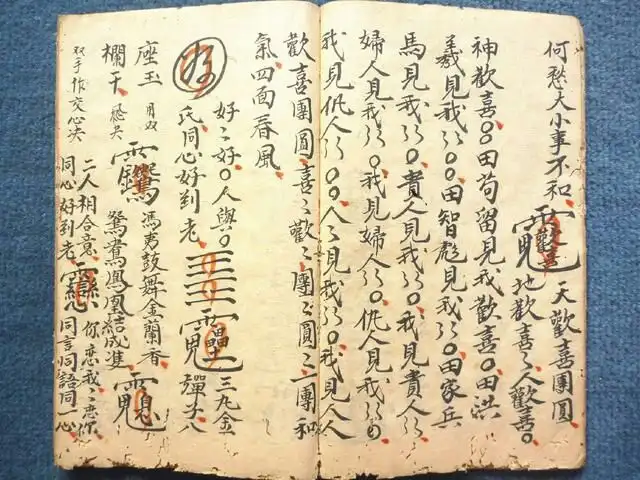 何愁大小事不和、
天歡喜團圓
地歡喜〻人歡喜〇
神歡喜〇〇田苟留見我歡喜〇田洪
義見我〻〻〇〇田智彪見我〻〻〇田家兵
馬見我〻〻〇貴人見我〻〻〇我見貴人〻〻
婦人見我〻〻〇我見婦人〻〻〇仇人見我〻〻〇
我見仇人〻〻〇〇人〻見我〻〻〇我見人人
歡喜團圓、喜〻歡〻團〻圓〻一團和
氣四面春風、
好〻好〇人與〇
氏同心好到老、
三九金
彈大八
座玉
鼓舞金蘭香
欄干
鴛鴦鳳凰結成雙
双手作交心决
二人相合意、你恋我〻恋你
同心好到老、同言同語同一心